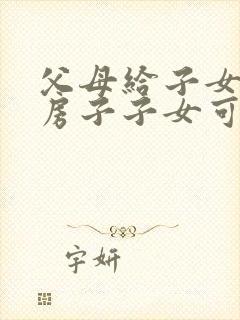 父母给子女
房子子女可
字妍